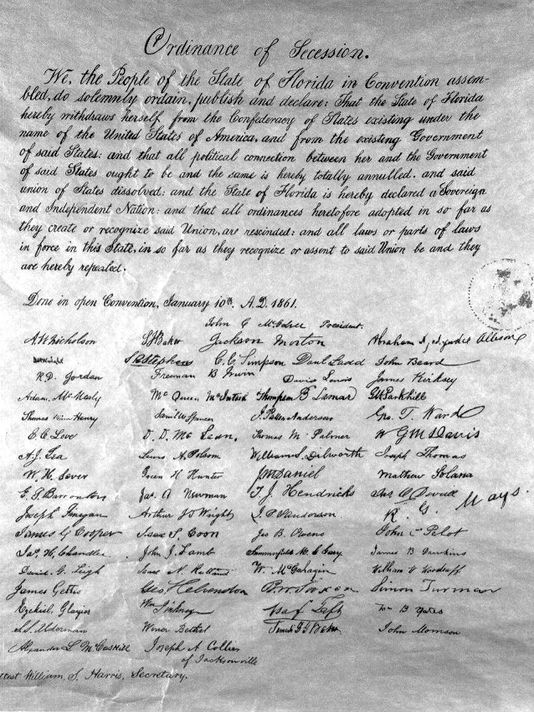 Ordinance of Secession.
We, the People of the State of Florida in Convention assem-
bled, do solemnly ordain, publish and declare: That the State of Florida
hereby withdraws herself from the Confederacy of States existing under the
name of the United States of America, and from the existing Government
of said States: and that all political connection between her and the Government
of said States ought to be and the same is hereby totally annulled. and said
union of States dissolved: and the State of Florida is hereby declared a Sovereign
and Independent Nation: and that all ordinances heretofore adopted in so far as
they create or recognize said Union, are rescinded: and all laws or parts of laws
in force in this State, in so far as they recognize or assent to said Union be and they
are hereby repealed.
Done in open Convention, January 10th. A.D. 1861.
John C McGehee President.
A W Nicholson S J Baker Jackson Morton Abraham J. Allison
J S Stephens C. C. Simpson Daul Ladd John Beard
R. D. Jordan Freeman B Irwin David Lewis James Kirksey
Adam McNealy McQueen McIntosh Thompson B Lamar G W Parkhill
Thomas Henry Saml W Spencer J. Patton Anderson Geo. T. Ward
E. E. Love D. D. McLean, Thomas M Palmer W G M Davis
A. J. Lea Lewis A. Folsom William S. Dilworth Joseph Thomas
W. H. Sever Green H Hunter J M Daniel Mathew Solana
E. P. Barrington Jas. A Newman T. J. Hendricks Jas O Devall
Joseph Finegan Arthur J T Wright J. P. Sanderson R. G. Mays.
James G Cooper Isaac S. Coon Jas B Owens John C Pelot
Jas. H. Chandler John J. Lamb M. G. Livy James B Dawkins
David G. Leigh Isaac N. Rutland W. McGahagin William W Woodruff
James Gettis Geo. Helvenston B. W. Saxon Simon Turman
Ezekiel Glazier Wm Pinkney Asa F Tift Wm B Yates
S. S. Alderman Winer Bethel John Morrison
Alexander L McCaskill Joseph A Collier
of Jacksonville
Attest William S. Harris, Secretary.